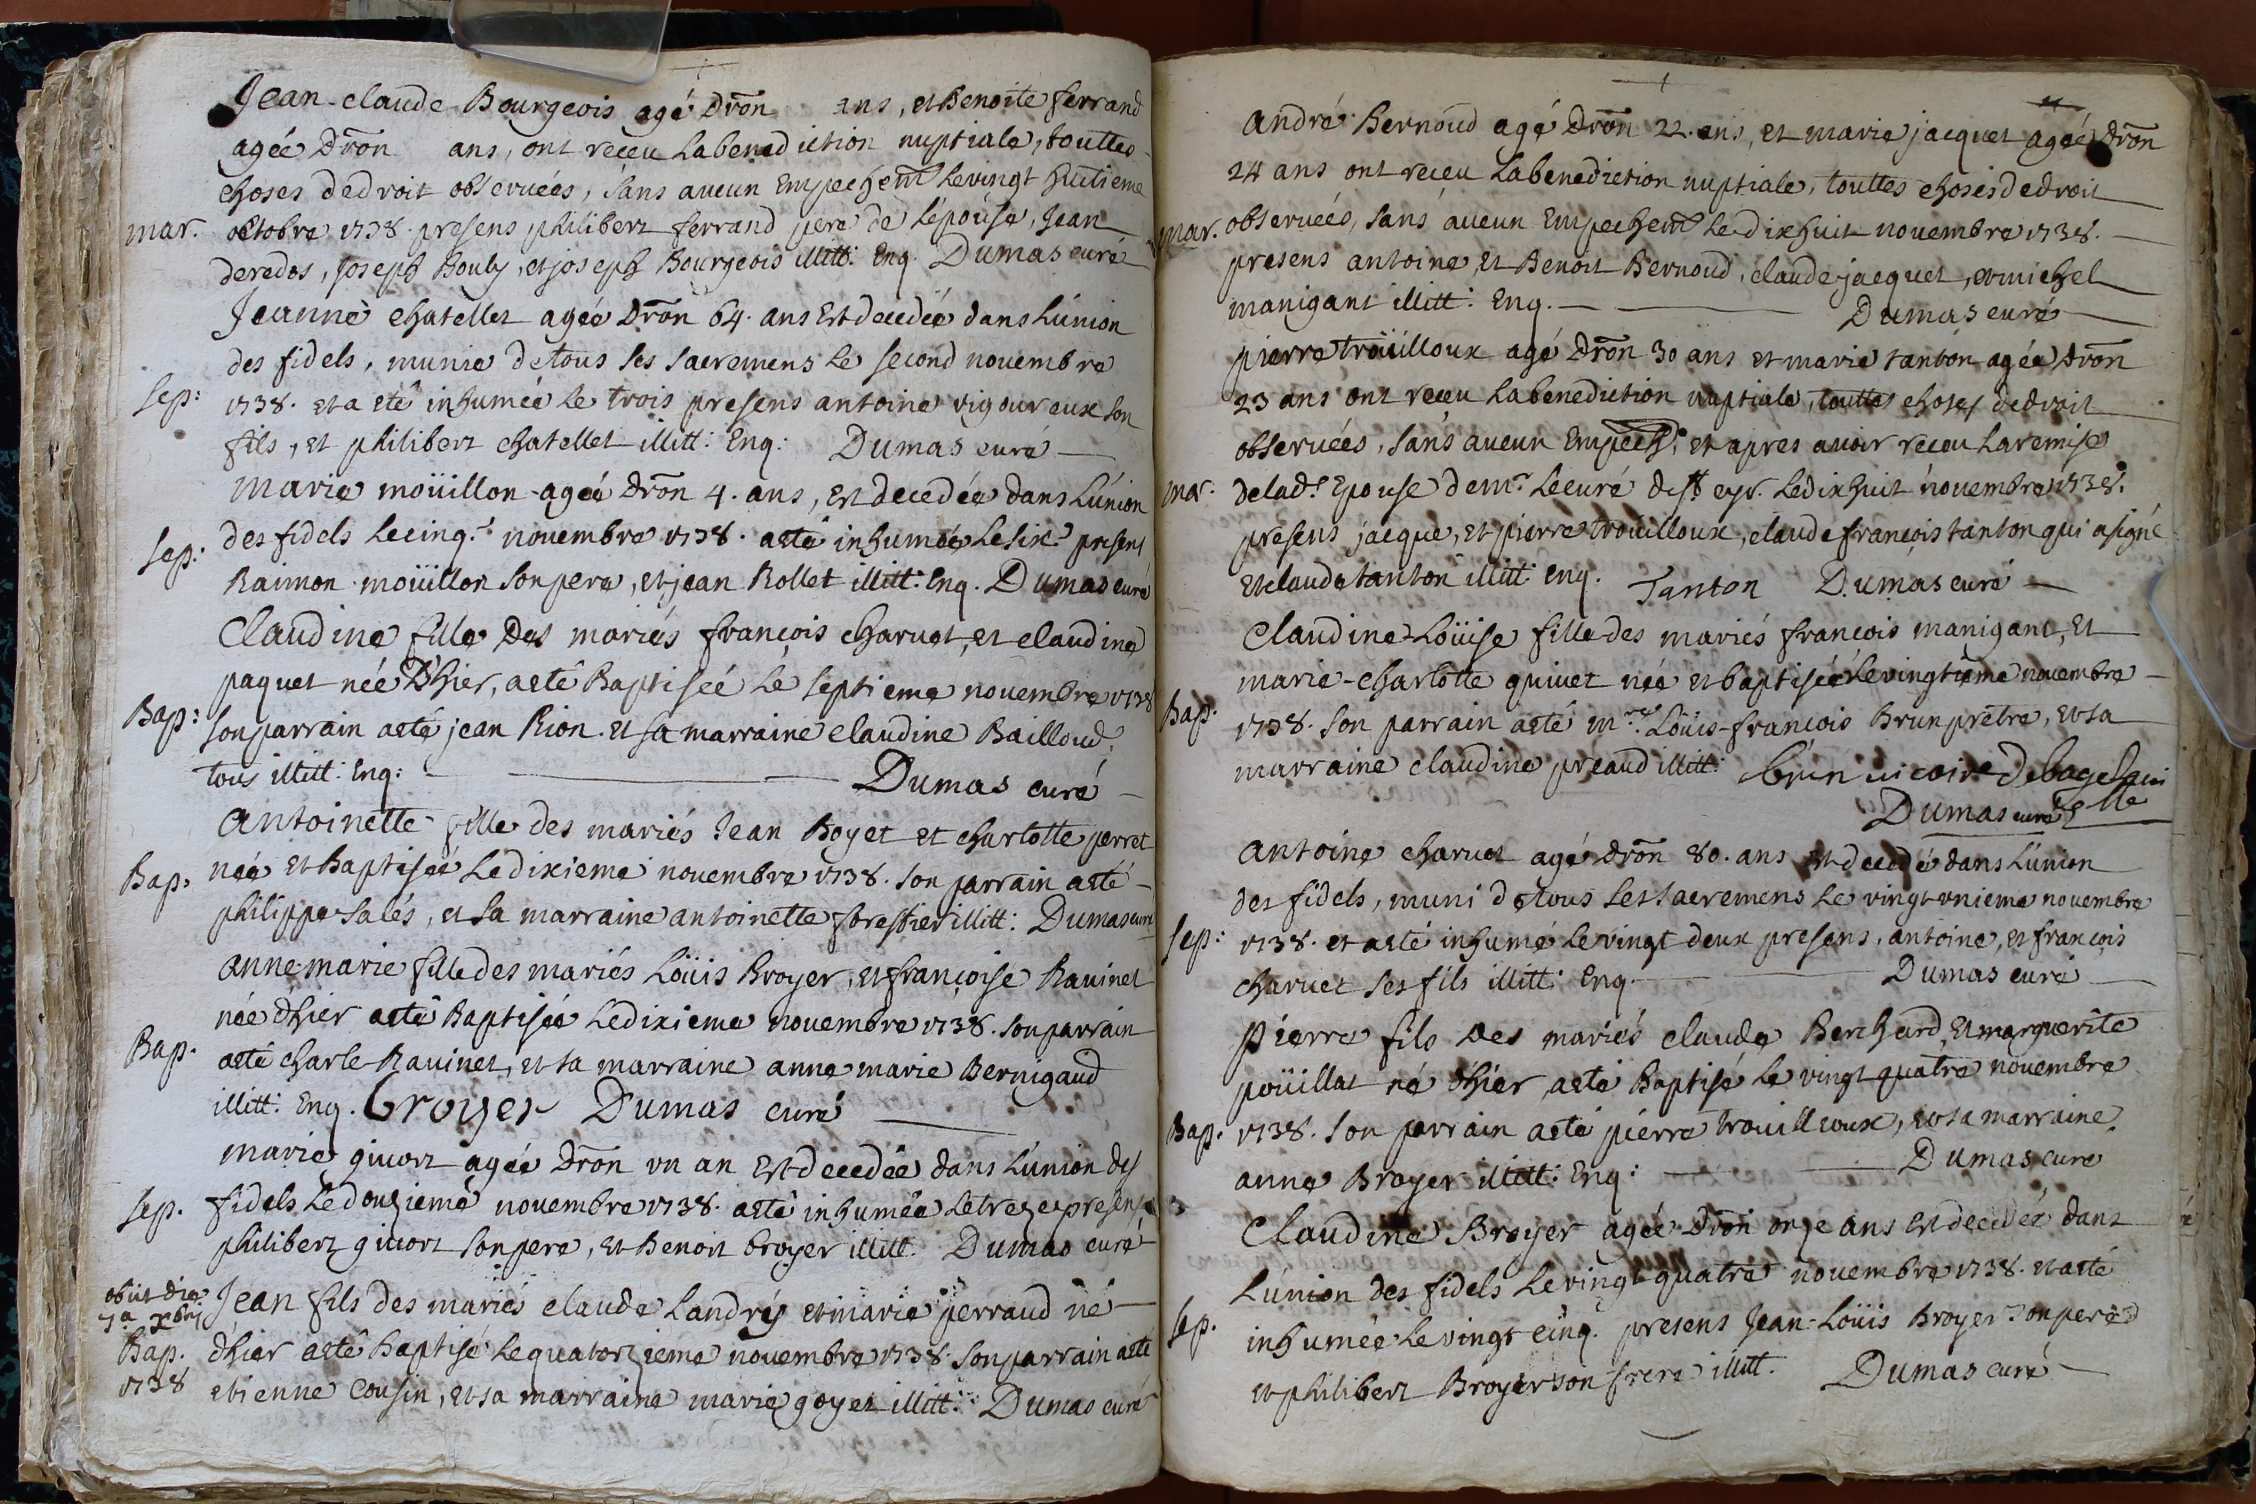 Jean-claude Bourgeois agé dron ans, et Benoite ferrand
agée dron ans, ont receu la benediction nuptiale, touttes
choses de droit observées, sans aucun Empechemt le vingt huitieme
mar. octobre 1738. presens philibert ferrand pere de l'épouse, Jean
deredos, Joseph Bouly, et joseph Bourgeois illitt: Enq. Dumas curé
Jeanne chatellet agée dron 64. ans Est decedée dans l'union
des fidels, munie de tous ses sacremens le second novembre
sep: 1738. et a eté inhumée le trois presens antoine vigoureux son
fils, et philibert chatellet illitt: Enq: Dumas curé
Marie moüillon agée dron 4. ans, est decedée dans l'union
sep: des fidels le cinq.e novembre 1738. a eté inhumée le six.e presens
Raimon moüillon son pere, et jean Rollet illitt: Enq. Dumas curé
Claudine fille Des mariés françois charvet, et claudine
paquet née D'hier, a eté Baptisée le septieme novembre 1738
Bap: son parrain a eté jean Rion. et sa marraine claudine Bailloud,
tous illitt: Enq: Dumas curé
Antoinette fille des mariés Jean Boyet et charlotte perret
Bap. née et Baptisée le dixieme novembre 1738. son parrain a eté
philippe salés, et sa marraine antoinette forestier illitt: Dumas curé
anne marie fille des mariés Loüis Broyer, et françoise Ravinet
née d'hier a eté Baptisée le dixieme novembre 1738. son parrain
Bap. a eté charle Ravinet, et sa marraine anne marie Bernigaud
illitt: Enq. Broyer Dumas curé
marie givort agée dron un an Est decedée dans l'union des
sep. fidels le douzieme novembre 1738. a eté inhumée le treze presens
philibert givort son pere, et Benoit broyer illitt. Dumas curé
obiit die Jean fils des mariés claude Landrés et marie perraud né
7a xbris
Bap. d'hier a eté Baptisé le quatorzieme novembre 1738. son parrain a eté
1738 etienne cousin, et sa marraine marie goyet illitt: Dumas curé
André Bernoud agé dron 22. ans, et marie jacquet agée dron
24 ans ont receu la benediction nuptiale, touttes choses de droit
mar. observées, sans aucun Empechemt le dixhuit novembre 1738.
presens antoine et Benoit Bernoud, claude jacquet, et michel
manigant illitt: Enq. Dumas curé
pierre troüilloux agé dron 30 ans et marie tanton agée dron
23 ans ont receu la benediction nuptiale, touttes choses de droit
observées, sans aucun Empech.t et apres avoir receu la remise
mar. de lad.e Epouse de mr. le curé de st cyr. le dixhuit novembre 1738.
presens jacque, et pierre troüilloux, claude françois tanton qui a signé
et claude tanton illitt: enq. Tanton Dumas curé
Claudine Loüise fille des mariés françois manigant, et
marie-charlotte quivet née et baptisée le vingtième novembre
Bap. 1738. son parrain a eté mre. Loüis-françois Brun prêtre, et sa
marraine claudine preaud illitt: brun vicaire de bagé la vi
lle
Dumas curé
Antoine charvet agé dron 80. ans est decedé dans l'union
des fidels, muni de tous les sacremens le vingt unieme novembre
sep: 1738. et a eté inhumé le vingt deux presens, antoine, et françois
charvet ses fils illitt: Enq. Dumas curé
Pierre fils des mariés claude Berchard, et marguerite
poüillat né d'hier a eté Baptisé le vingt quatre novembre
Bap. 1738. son parrain a eté pierre trouilloux, et sa marraine
anne Broyer illitt: Enq: Dumas curé
Claudine Broyer agée dron onze ans est decedée dans
L'union des fidels le vingt quatre novembre 1738. et a eté
sep. inhumée le vingt cinq. presens Jean-Loüis Broyer son pere
et philibert Broyer son frere illitt. Dumas curé